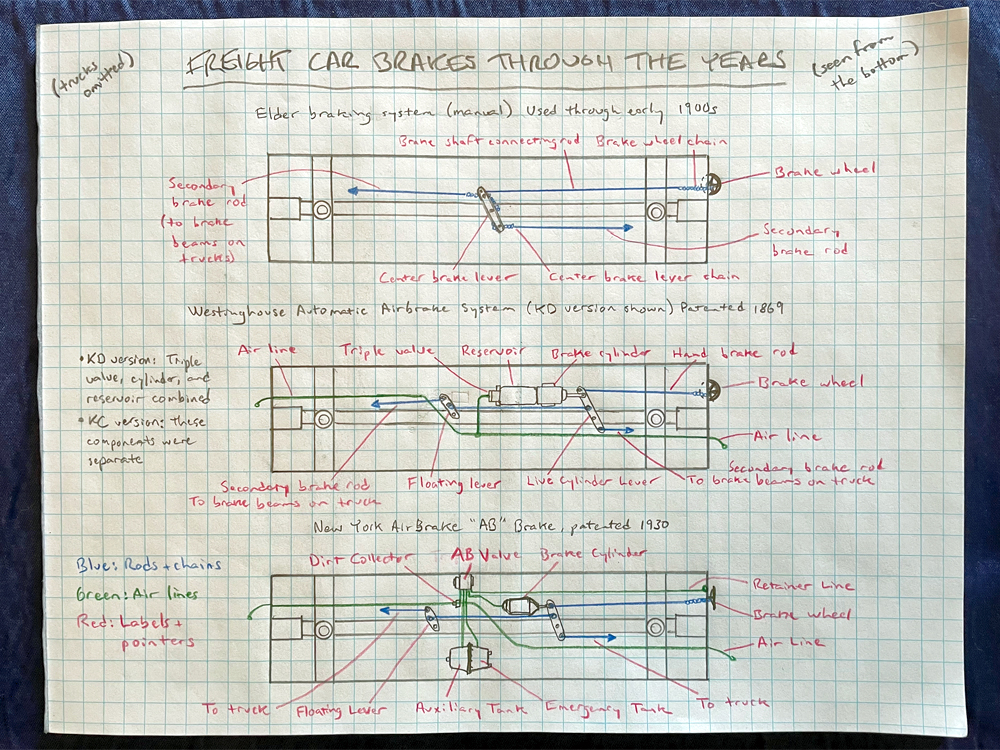 (trucks
omitted)
FREIGHT CAR BRAKES THROUGH THE YEARS
(seen from
the bottom)
Elder braking system (manual) Used through early 1900s
Brake shaft connecting rod
Brake wheel chain
Brake wheel
Secondary
brake rod
(to brake
beams on
trucks)
Secondary
brake rod
Center brake lever
Center brake lever chain
Westinghouse Automatic Airbrake System (KD version shown) Patented 1869
• KD version: Triple
valve, cylinder, and
reservoir combined
• KC version: these
components were
separate
Air line
Triple valve
Reservoir
Brake cylinder
Hand brake rod
Brake wheel
Air line
Secondary brake rod
To brake beams on truck
Floating lever
Live Cylinder Lever
Secondary brake rod
To brake beams on truck
New York Air Brake "AB" Brake, patented 1930
Blue: Rods + chains
Green: Air lines
Red: Labels +
pointers
Dirt Collector
AB Valve
Brake Cylinder
Retainer Line
Brake wheel
Air Line
To truck
Floating Lever
Auxiliary Tank
Emergency Tank
To truck